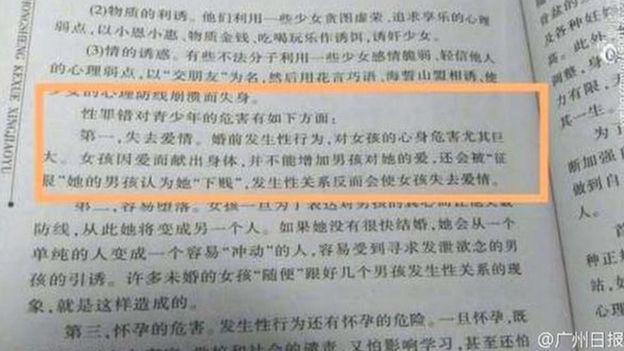 (2)物质的利诱。他们利用一些少女贪图虚荣，追求享乐的心理
弱点，以小恩小惠，物质金钱，吃喝玩乐作诱饵，诱奸少女。
(3)情的诱惑。有些不法分子利用一些少女感情脆弱，轻信他人
的心理弱点，以“交朋友”为名，然后用花言巧语，海誓山盟相诱，使
少女的心理防线崩溃而失身。
性罪错对青少年的危害有如下方面：
第一，失去爱情。婚前发生性行为，对女孩的心身危害尤其巨
大。女孩因爱而献出身体，并不能增加男孩对她的爱，还会被“征
服”她的男孩认为她“下贱”，发生性关系反而会使女孩失去爱情。
第二，容易堕落。女孩一旦为了表达对男孩的真心而
防线，从此她将变成另一个人。如果她没有很快结婚，她会从一个
单纯的人变成一个容易“冲动”的人，容易受到寻求发泄欲念的男
孩的引诱。许多未婚的女孩“随便”跟好几个男孩发生性关系的现
象，就是这样造成的。
第三，怀孕的危害。发生性行为还有怀孕的危险。一旦怀孕，
又怕影响学习，甚至还怕
HONGSHENG KEXUE XINGJIAOYU
音盆的
及各种妊
高。此外
调整，身
力有限，无
其
断加强自
做到自
人。
首
种正规
站，如
心理
@广州日报